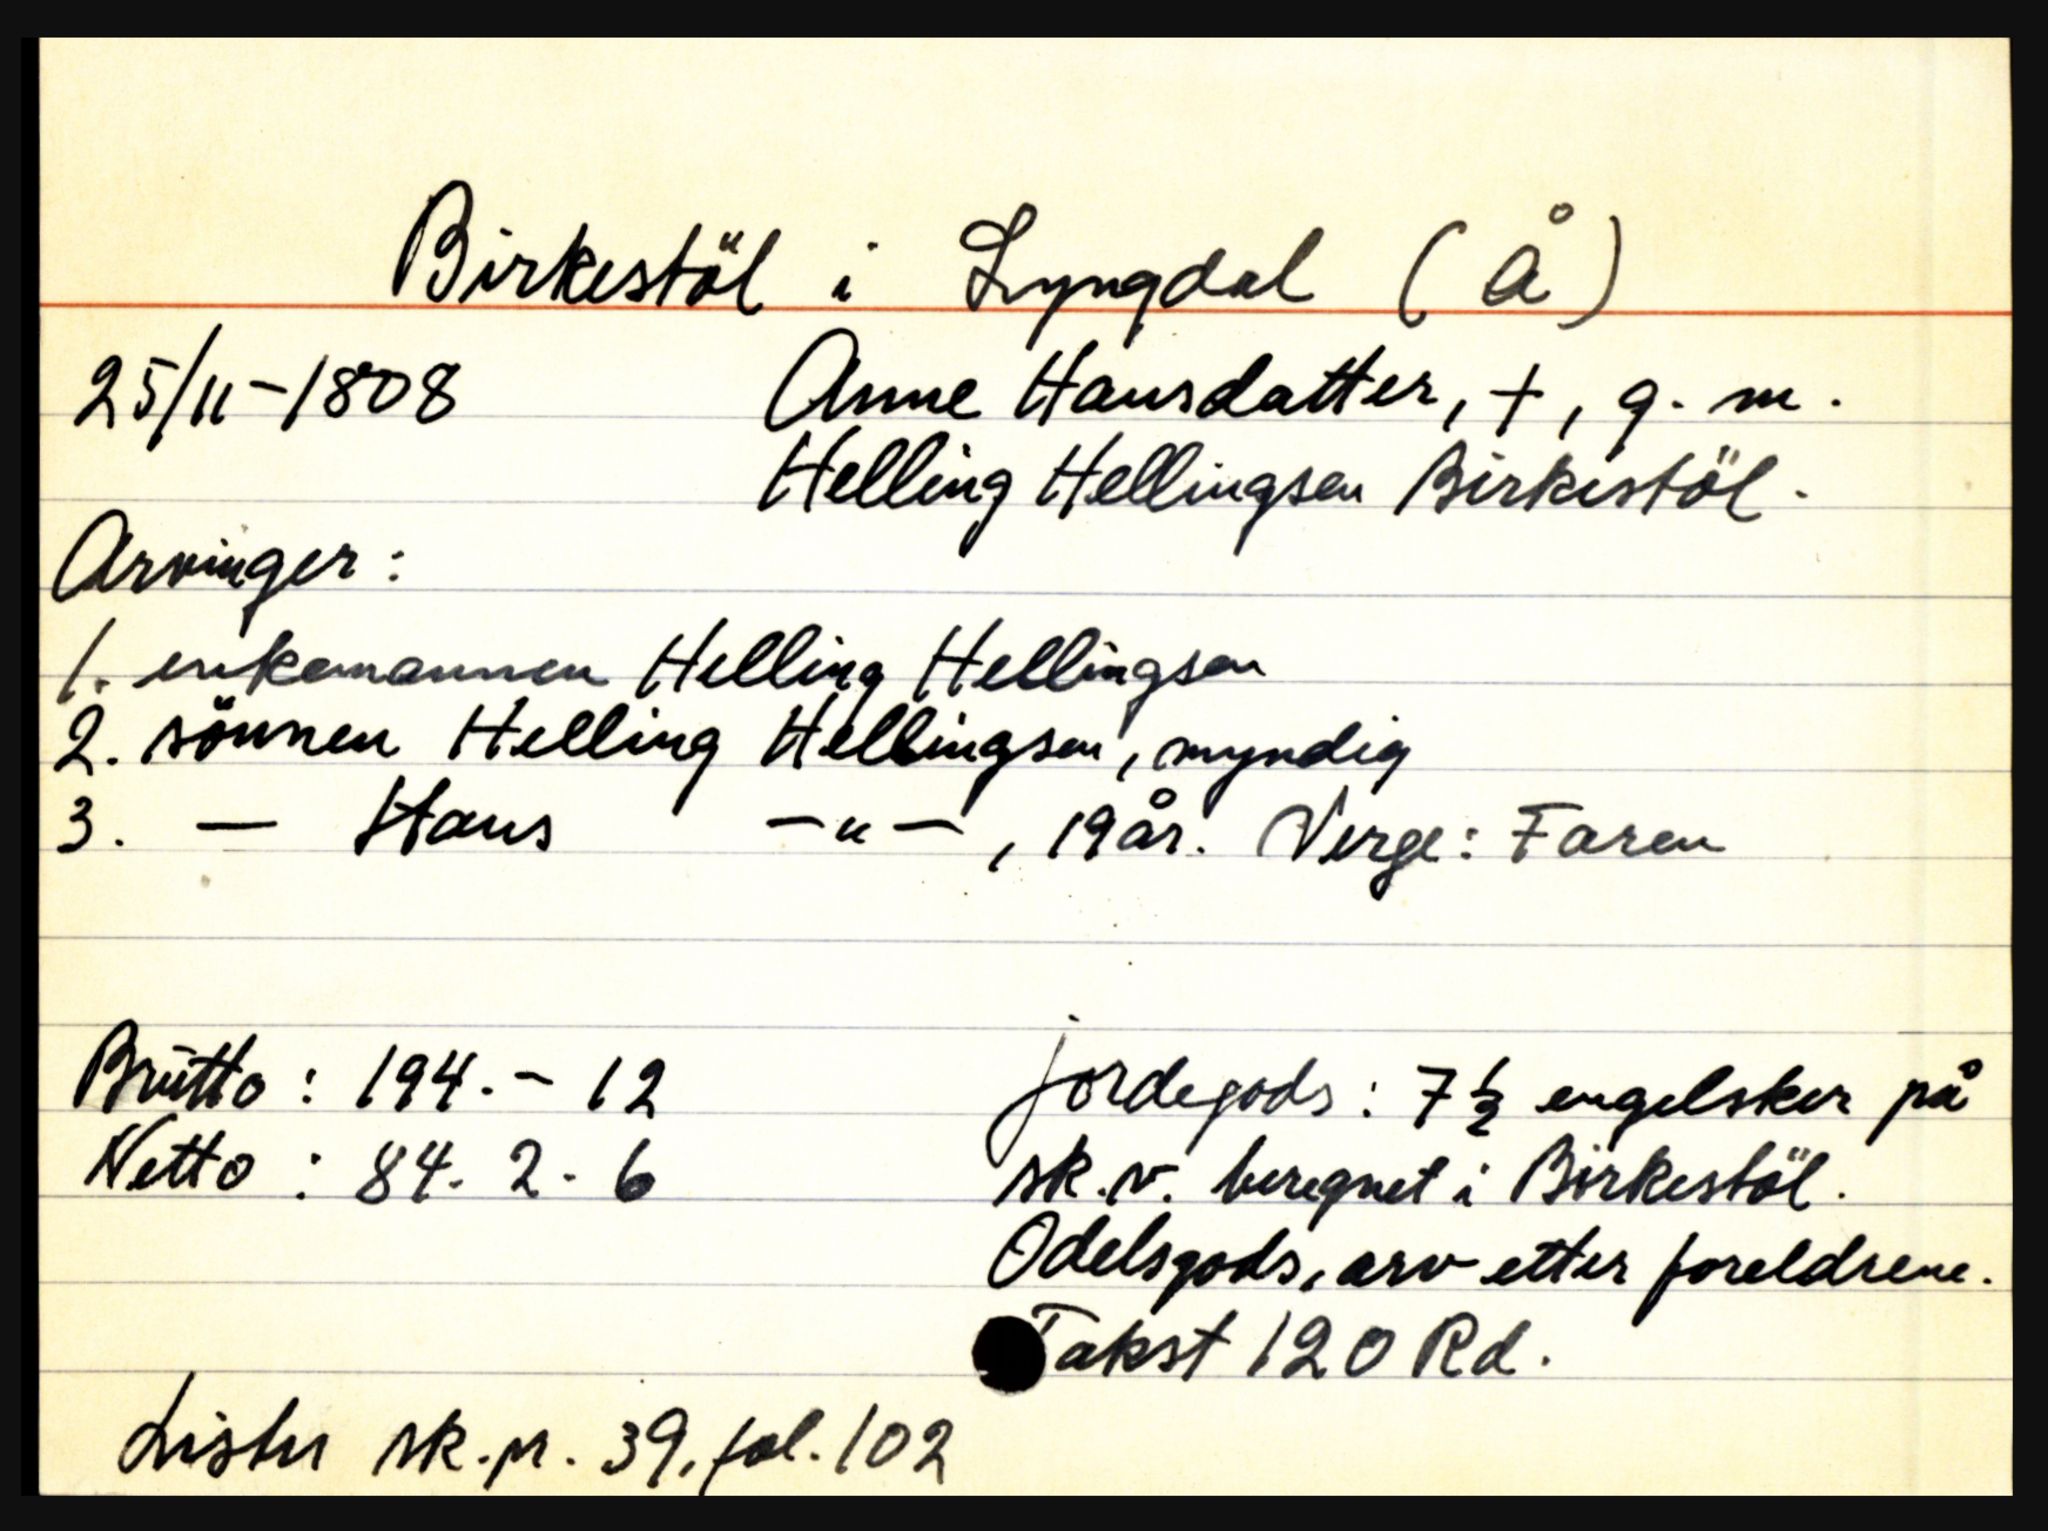 Birkestöl i Lyngdal (Å)
25/11-1808 Anne Hansdatter, +, g. m.
Helling Hellingsen Birkestöl.
Arvinger:
1. enkemannen Helling Hellingsen
2. sönnen Helling Hellingsen, myndig
3. — Hans —"—, 19 år. Verge: Faren
Brutto: 194.-12
Netto: 84. 2. 6
jordegods: 7 1/2 engelsker på
sk.v. beregnet i Birkestöl.
Odelsgods, arv etter foreldrene.
Takst 120 Rd.
Lister sk.pr. 39, fol. 102